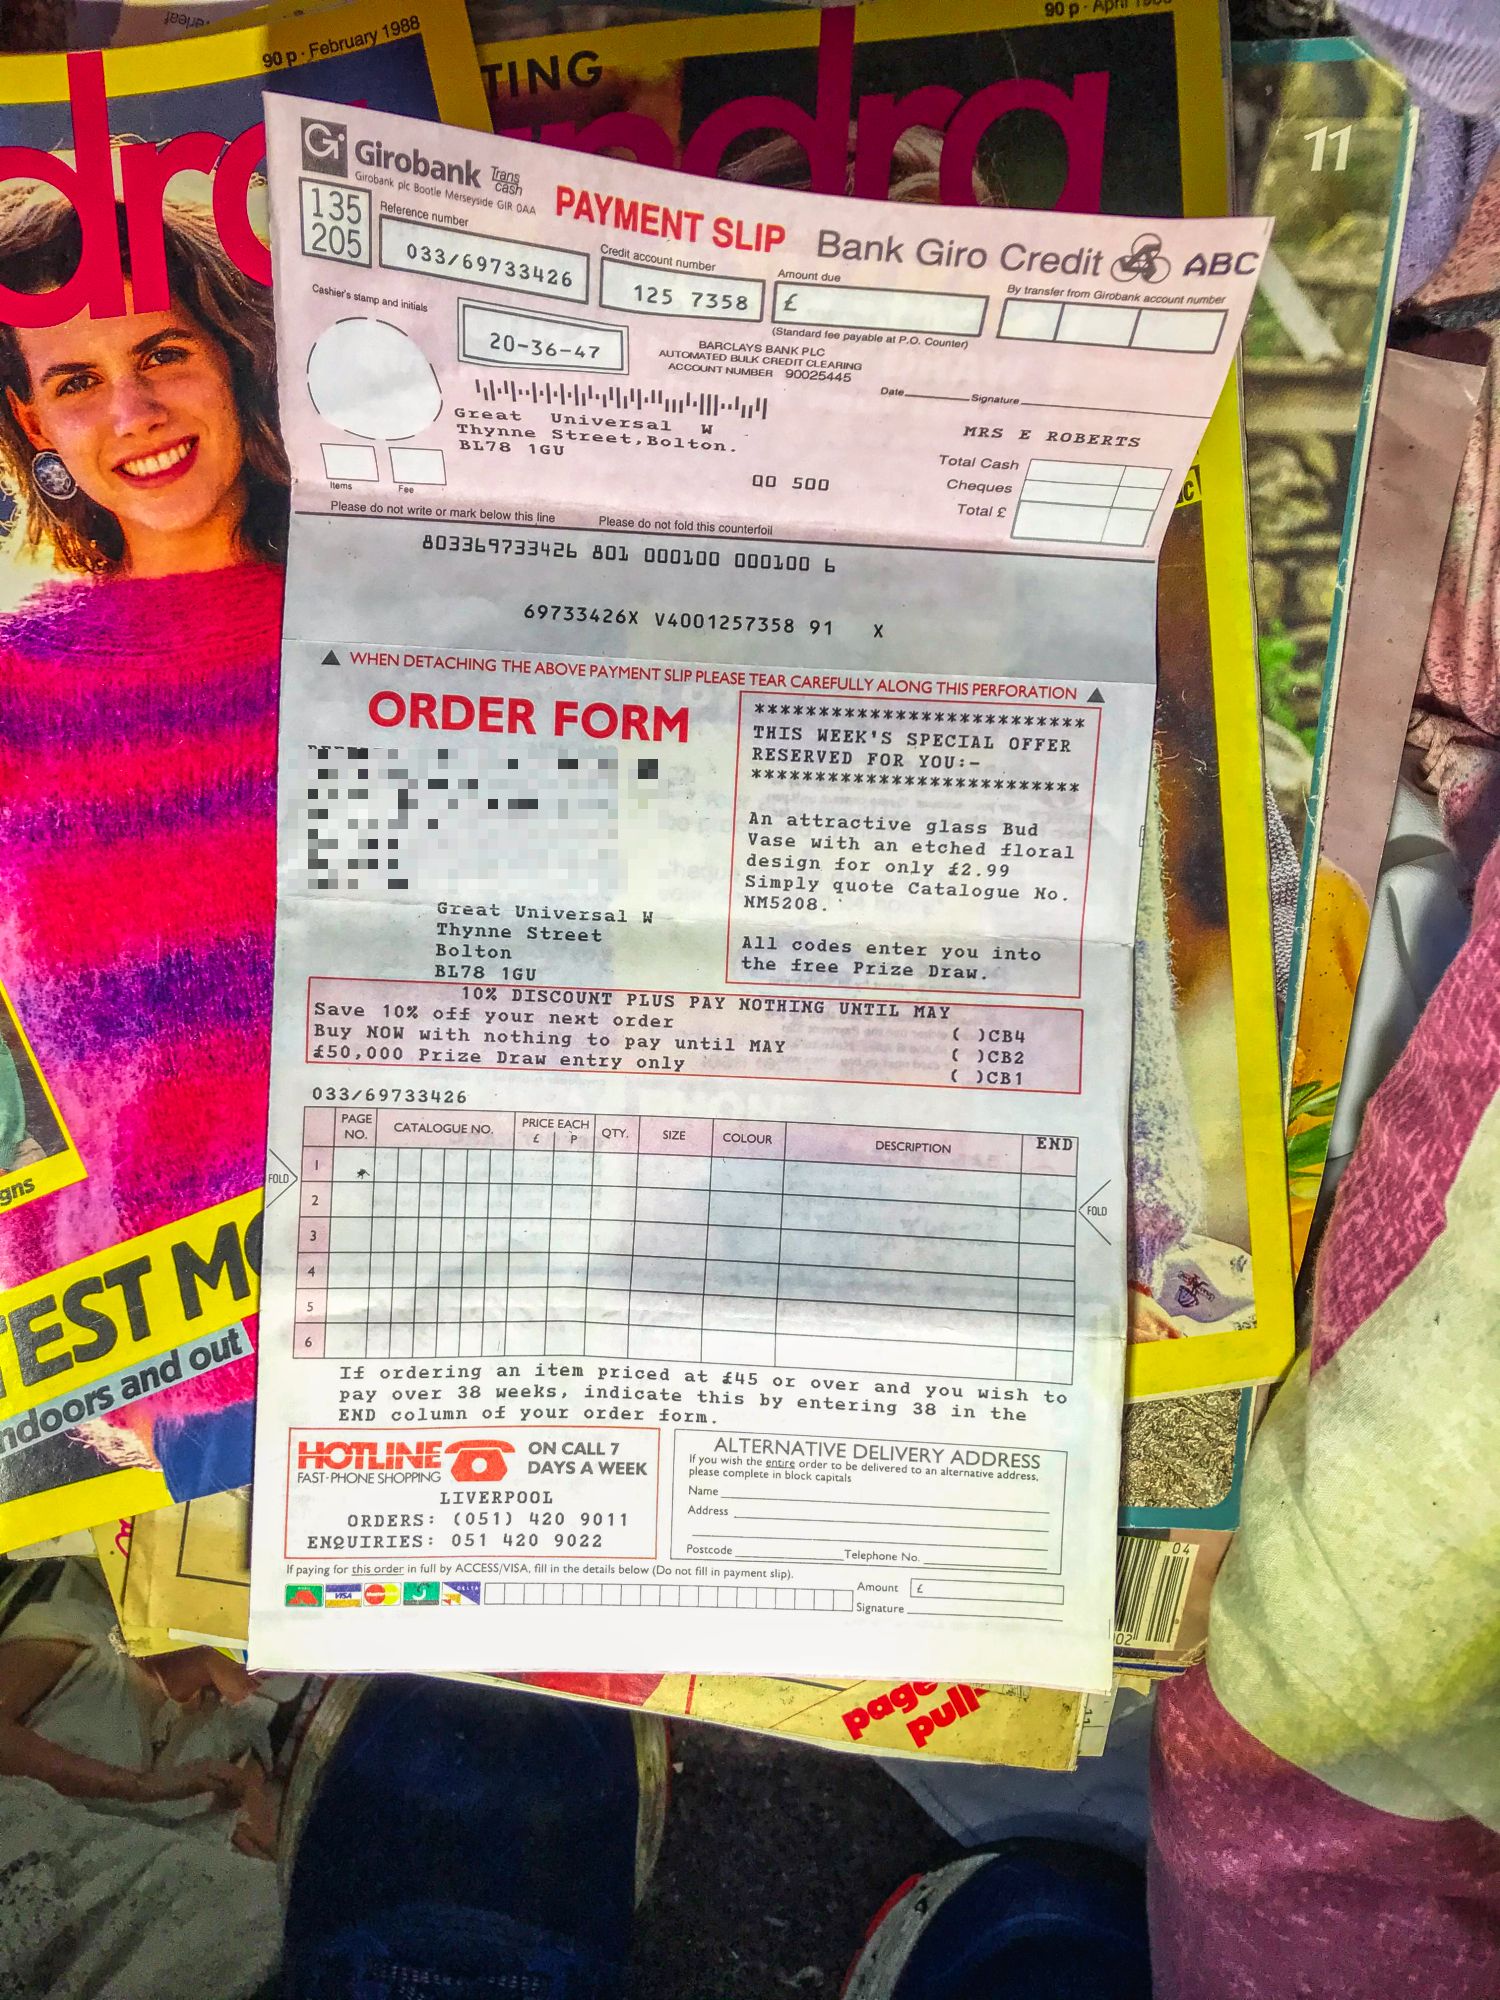 90 p · February 1988
90 p · April
TING
11
Gi Girobank Trans cash
Girobank plc Bootle Merseyside GIR 0AA
PAYMENT SLIP
Bank Giro Credit ABC
135
205
Reference number
033/69733426
Credit account number
125 7358
Amount due
£
(Standard fee payable at P.O. Counter)
By transfer from Girobank account number
Cashier's stamp and initials
20-36-47
BARCLAYS BANK PLC
AUTOMATED BULK CREDIT CLEARING
ACCOUNT NUMBER 90025445
Date Signature
Great Universal W
Thynne Street,Bolton.
BL78 1GU
MRS E ROBERTS
Total Cash
Cheques
Total £
00 500
Items Fee
Please do not write or mark below this line Please do not fold this counterfoil
803369733426 801 000100 000100 6
69733426X V4001257358 91 X
▲ WHEN DETACHING THE ABOVE PAYMENT SLIP PLEASE TEAR CAREFULLY ALONG THIS PERFORATION ▲
ORDER FORM
Great Universal W
Thynne Street
Bolton
BL78 1GU
**************************
THIS WEEK'S SPECIAL OFFER
RESERVED FOR YOU:-
**************************
An attractive glass Bud
Vase with an etched floral
design for only £2.99
Simply quote Catalogue No.
NM5208.
All codes enter you into
the free Prize Draw.
10% DISCOUNT PLUS PAY NOTHING UNTIL MAY
Save 10% off your next order ( )CB4
Buy NOW with nothing to pay until MAY ( )CB2
£50,000 Prize Draw entry only ( )CB1
033/69733426
PAGE NO. CATALOGUE NO. PRICE EACH £ P QTY. SIZE COLOUR DESCRIPTION END
1
2
3
4
5
6
FOLD
FOLD
If ordering an item priced at £45 or over and you wish to
pay over 38 weeks, indicate this by entering 38 in the
END column of your order form.
HOTLINE
FAST-PHONE SHOPPING
ON CALL 7
DAYS A WEEK
LIVERPOOL
ORDERS: (051) 420 9011
ENQUIRIES: 051 420 9022
ALTERNATIVE DELIVERY ADDRESS
If you wish the entire order to be delivered to an alternative address,
please complete in block capitals
Name
Address
Postcode Telephone No.
If paying for this order in full by ACCESS/VISA, fill in the details below (Do not fill in payment slip).
VISA MasterCard DELTA
Amount £
Signature
gns
EST
ndoors and out
04
02
page
pull